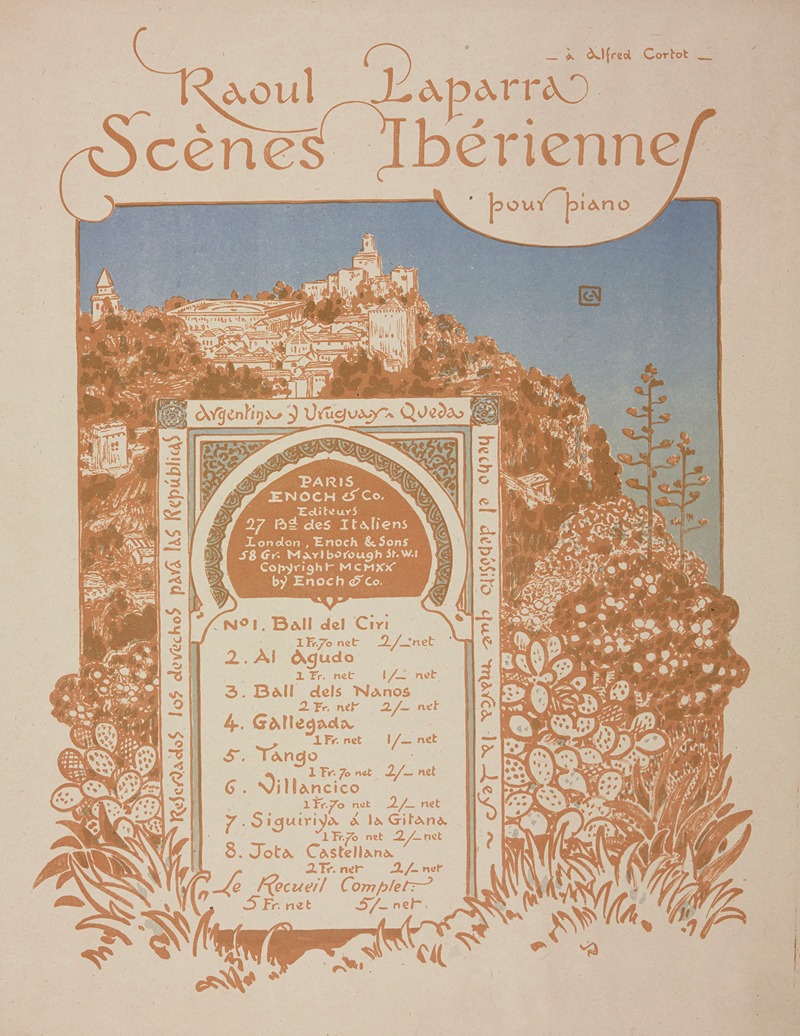 — à Alfred Cortot —
Raoul Laparra
Scènes Ibériennes
pour piano
Argentina y Uruguay - Queda
hecho el depósito que marca la Ley ~
Reservados los derechos para las Repúblicas
PARIS
ENOCH & Co.
Editeurs
27 Bd des Italiens
London, Enoch & Sons
58 Gr. Marlborough St. W.1
Copyright MCMXX
by Enoch & Co.
No 1. Ball del Ciri
1 Fr. 70 net 2/– net
2. Al Agudo
1 Fr. net 1/– net
3. Ball dels Nanos
2 Fr. net 2/– net
4. Gallegada
1 Fr. net 1/– net
5. Tango
1 Fr. 70 net 2/– net
6. Villancico
1 Fr. 70 net 2/– net
7. Siguiriya á la Gitana
1 Fr. 70 net 2/– net
8. Jota Castellana
2 Fr. net 2/– net
Le Recueil Complet:
5 Fr. net 5/– net.